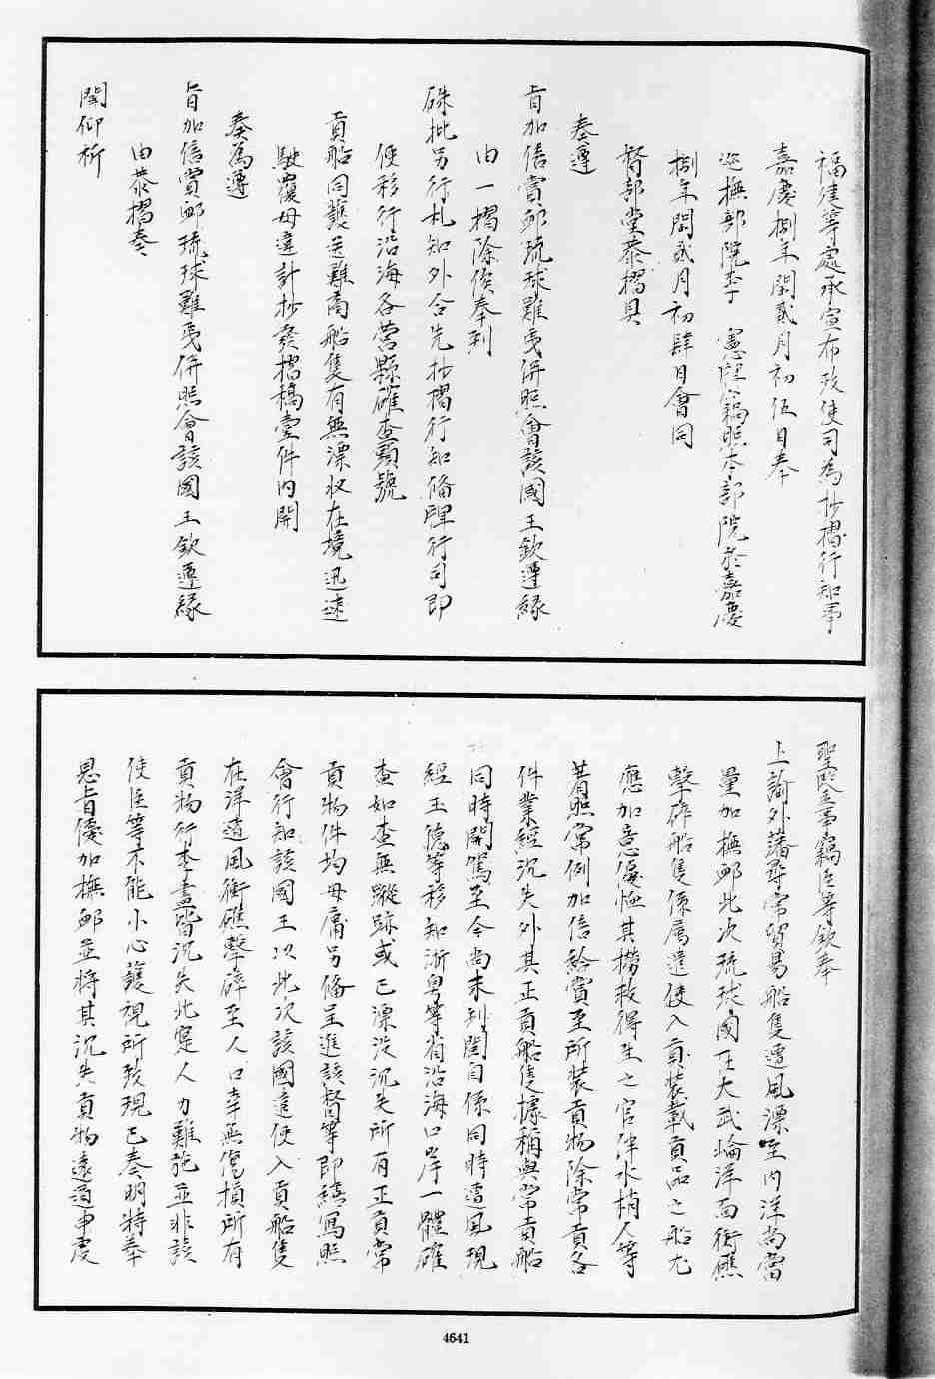 福建等處承宣布政使司為抄摺行知事
嘉慶捌年閏貳月初伍日奉
巡撫部院李 憲牌竊照本部院於嘉慶
捌年閏貳月初肆日會同
督部堂恭摺具
奏遵
旨加倍賞卹琉球難夷併照會該國王欽遵緣
由一摺除俟奉到
硃批另行札知外合先抄摺行知備牌行司即
便移行沿海各營縣確查頭號
貢船同護送難商船隻有無漂收在境迅速
馳覆毋違計抄發摺稿壹件內開
奏為遵
旨加倍賞卹琉球難夷併照會該國王欽遵緣
由恭摺奏
聞仰祈
聖鑒事竊臣等欽奉
上諭外藩尋常貿易船隻遭風漂至內洋尚當
量加撫卹此次琉球國在大武崙洋面衝礁
擊碎船隻係屬遣使入貢裝載貢品之船尤
應加意優恤其撈救得生之官伴水梢人等
著照常例加倍給賞至所裝貢物除常貢各
件業經沉失外其正貢船隻據稱與常貢船
同時開駕至今尚未到閩自係同時遭風現
經玉德等移知浙粵等省沿海口岸一體確
查如查無蹤跡或已漂沒沉失所有正貢常
貢物件均毋庸另備呈進該督等即繕寫照
會行知該國王以此次該國遣使入貢船隻
在洋遭風衝礁擊碎至人口幸無傷損所有
貢物行李盡皆沉失此寔人力難施並非該
使臣等不能小心護視所致現已奏明特奉
恩旨優加撫卹並將其沉失貢物遠道申虔
4641